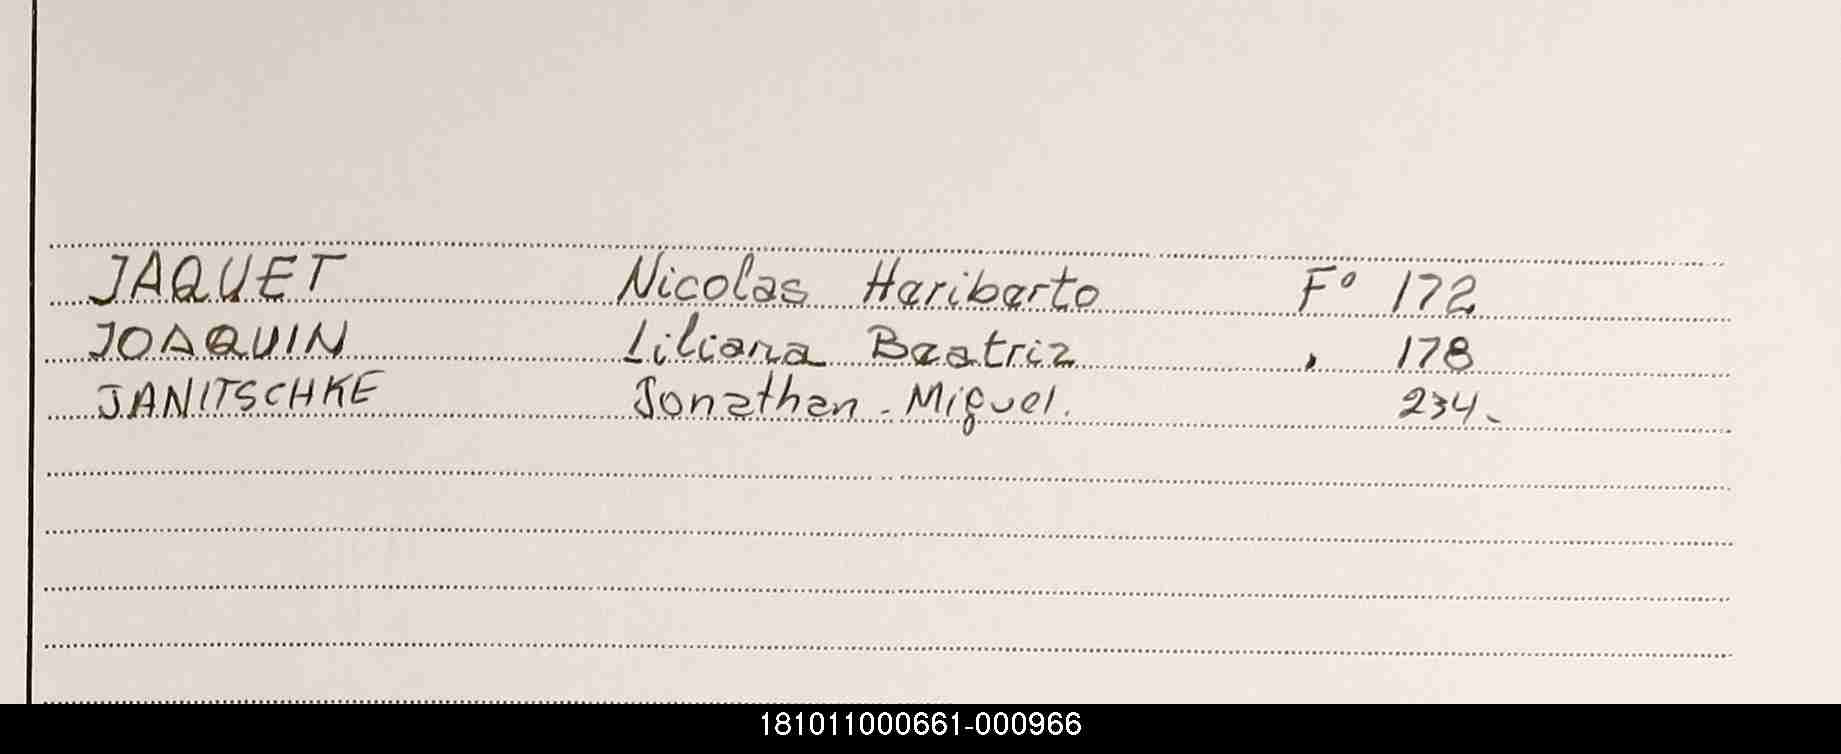 JAQUET Nicolas Heriberto Fº 172
JOAQUIN Liliana Beatriz " 178
JANITSCHKE Jonathan - Miguel. 234-
181011000661-000966